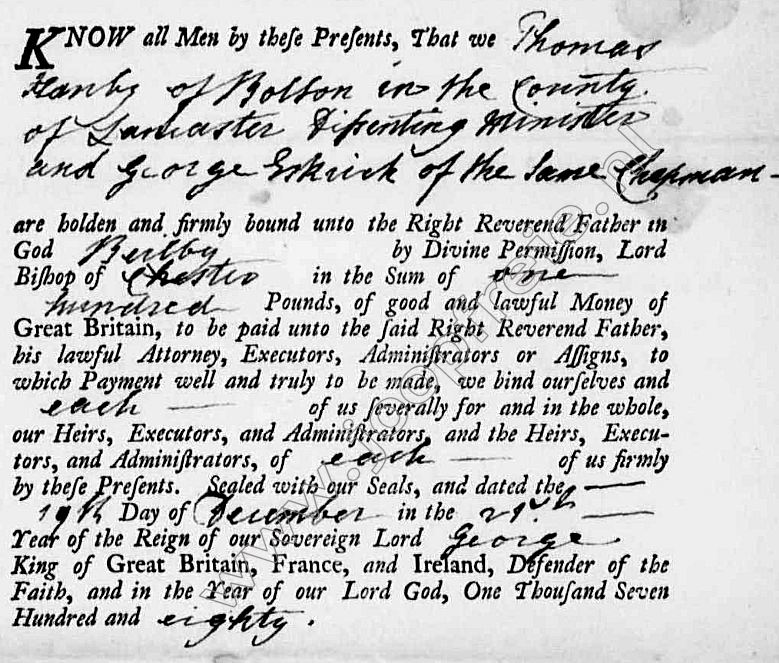 KNOW all Men by theſe Preſents, That we Thomas
Hanby of Bolton in the County
of Lancaster Diſsenting Minister
and George Eskrick of the Same Chapman
are holden and firmly bound unto the Right Reverend Father in
God Beilby by Divine Permiſſion, Lord
Biſhop of Chester in the Sum of one
hundred Pounds, of good and lawful Money of
Great Britain, to be paid unto the ſaid Right Reverend Father,
his lawful Attorney, Executors, Adminiſtrators or Aſſigns, to
which Payment well and truly to be made, we bind ourſelves and
each of us ſeverally for and in the whole,
our Heirs, Executors, and Adminiſtrators, and the Heirs, Execu-
tors, and Adminiſtrators, of each of us firmly
by theſe Preſents. Sealed with our Seals, and dated the
19th Day of December in the 21st
Year of the Reign of our Sovereign Lord George
King of Great Britain, France, and Ireland, Defender of the
Faith, and in the Year of our Lord God, One Thouſand Seven
Hundred and eighty.
www.joopfreie.nl